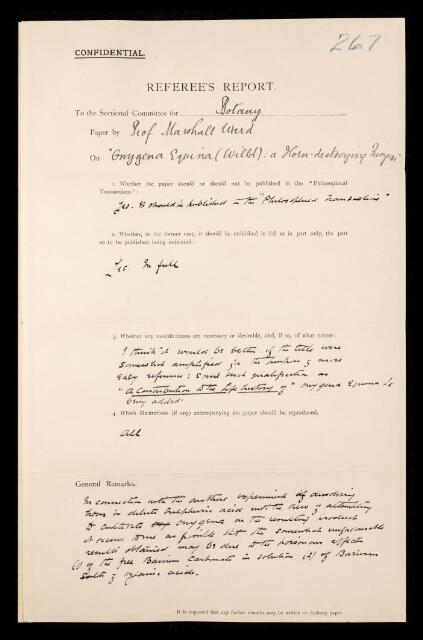 CONFIDENTIAL.
267
REFEREE'S REPORT.
To the Sectional Committee for Botany
Paper by Prof Marshall Ward
On "Onygena Equina (Willd): a Horn-destroying Fungus"
1. Whether the paper should or should not be published in the "Philosophical
Transactions":
Yes. It should be published in the "Philosophical Transactions"
2. Whether, in the former case, it should be published in full or in part only, the part
so to be published being indicated:
Yes. In full
3. Whether any modifications are necessary or desirable, and, if so, of what nature:
I think it would be better if the title were
somewhat amplified for the purpose of more
easy reference; some such qualification as
"A Contribution to the Life history of" Onygena Equina &c
being added.
4. Which illustrations (if any) accompanying the paper should be reproduced.
All
General Remarks.
In connection with the authors experiment of dissolving
horn in dilute Sulphuric acid with the view of attempting
to cultivate Onygena on the resulting product
it occurs to me as possible that the somewhat unfavourable
results obtained may be due to the poisonous effect
(1) of the free Barium Carbonate in solution (2) of Barium
Salts of organic acids.
It is requested that any further remarks may be written on foolscap paper.